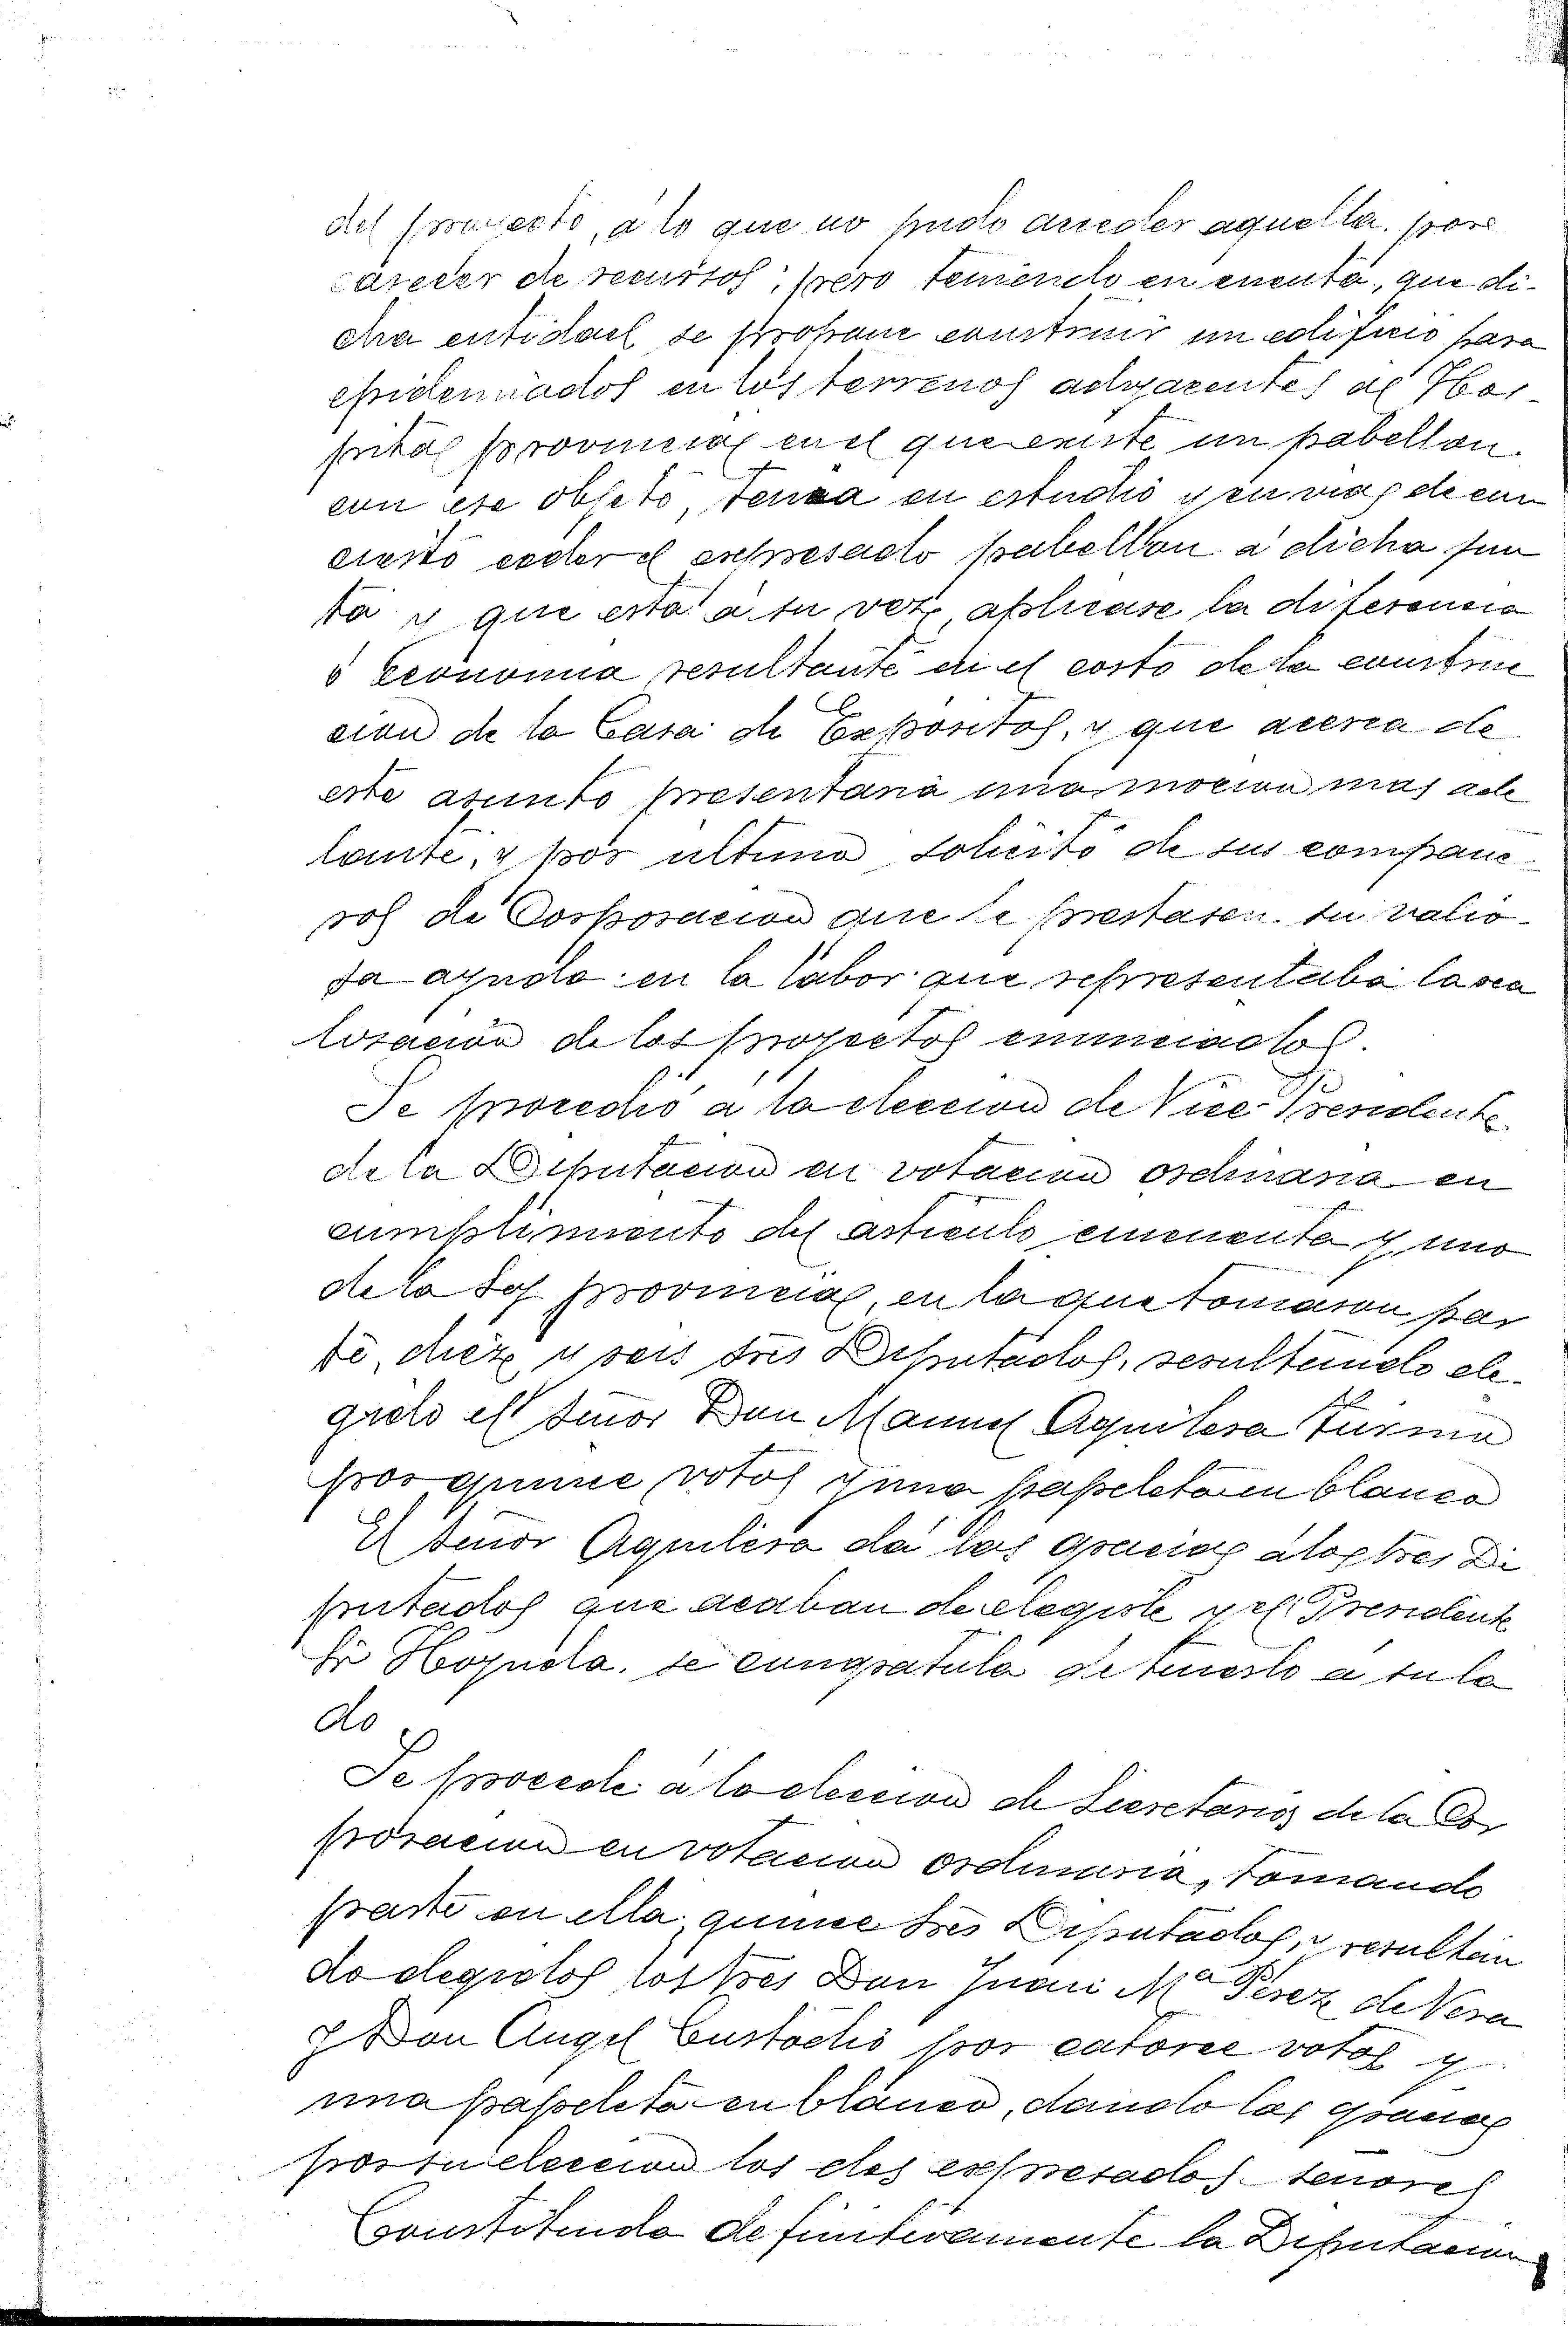 del proyecto, a lo que no pudo acceder aquella por
carecer de recursos; pero teniendo en cuenta, que di-
cha entidad se propone construir un edificio para
epidemiados en los terrenos adyacentes al Hos-
pital provincial en el que existe un pabellon
con ese objeto, tenia en estudio y en vias de con
cierto ceder el expresado pabellon a dicha jun
ta y que esta á su vez, aplicase la diferencia
ó economia resultante en el costo de la construc
cion de la Casa de Expositos, y que acerca de
este asunto presentaria una mocion mas ade
lante, y por ultimo solicitó de sus compañe-
ros de Corporacion que le prestasen su valio-
sa ayuda en la labor que representaba la rea
lizacion de los proyectos enunciados.
Se procedió a la eleccion de Vice-Presidente
de la Diputacion en votacion ordinaria en
cumplimiento del articulo cincuenta y uno
de la Ley provincial, en la que tomaron par
te, diez y seis sres Diputados, resultando ele-
gido el señor Don Manuel Aguilera Turmo
por quince votos y una papeleta en blanco
El señor Aguilera dá las gracias a los sres Di
putados que acaban de elegirle y el Presidente
Sr Hoyuela, se congratula de tenerlo a su la
do
Se procede a la eleccion de Secretarios de la Cor
poracion en votacion ordinaria, tomando
parte en ella quince sres Diputados, y resultan
do elegidos los sres Don Juan Mª Perez de Vera
y Don Angel Custodio por catorce votos y
una papeleta en blanco, dando las gracias
por su eleccion los dos expresados señores
Constituida definitivamente la Diputacion